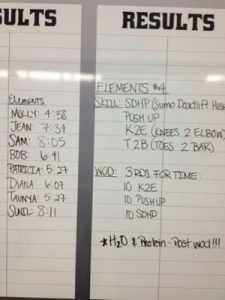 SULTS
RESULTS
ELEMENTS
MOLLY: 4:38
JEAN: 7:34
SAM: 8:05
BOB: 6:41
PATRICIA: 5:27
DIANA: 6:07
TAUNYA: 5:27
SUNIL: 8:11
ELEMENTS #4
SKILL: SDHP (Sumo Deadlift High
PUSH UP
K2E (KNEES 2 ELBOW)
T2B (TOES 2 BAR)
WOD: 3 RDS FOR TIME:
10 K2E
10 PUSHUP
10 SDHP
*H2O & Protein - Post wod!!!